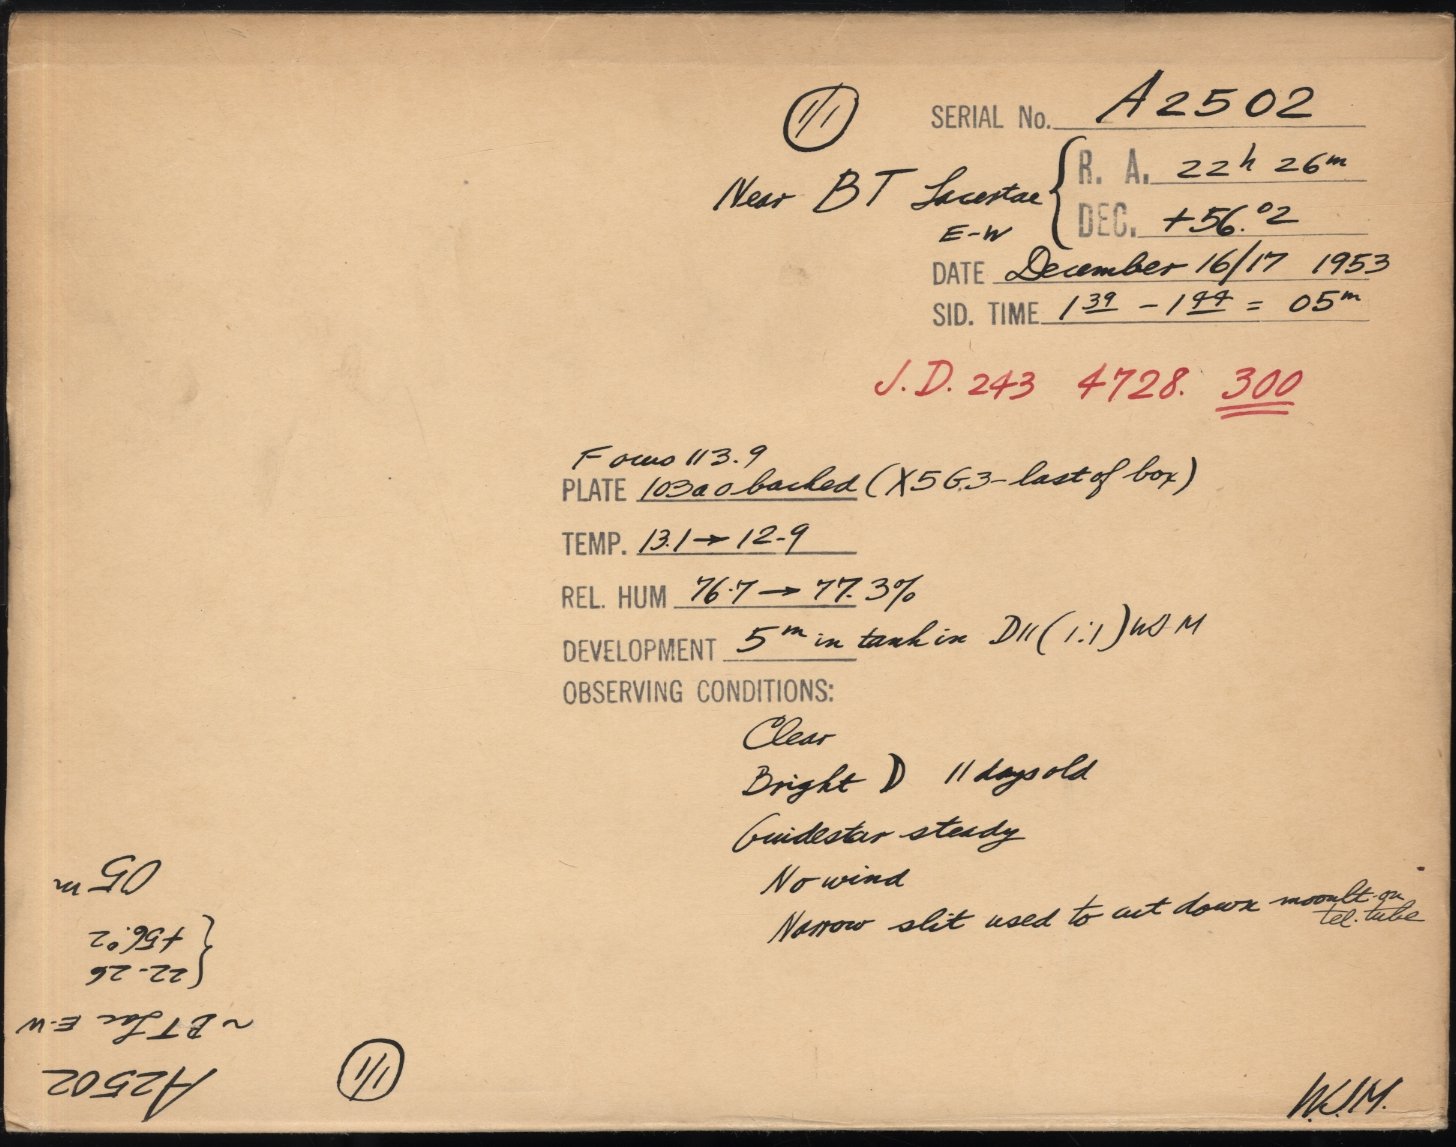 1/1
SERIAL No. A2502
Near BT Lacertae { R. A. 22h 26m
E-W DEC. +56.°2
DATE December 16/17 1953
SID. TIME 1 39 - 1 44 = 05m
J.D. 243 4728. 300
Focus 113.9
PLATE 103a o backed (X5G.3 - last of box)
TEMP. 13.1 → 12.9
REL. HUM 76.7 → 77.3%
DEVELOPMENT 5m in tank in D11 (1:1) WJM
OBSERVING CONDITIONS:
Clear
Bright D 11 days old
Guidestar steady
No wind
Narrow slit used to cut down moonlt. on
tel. tube
W.J.M.
A2502
~ BT Lac E-W
{ 22-26
+56.°2
05m
1/1